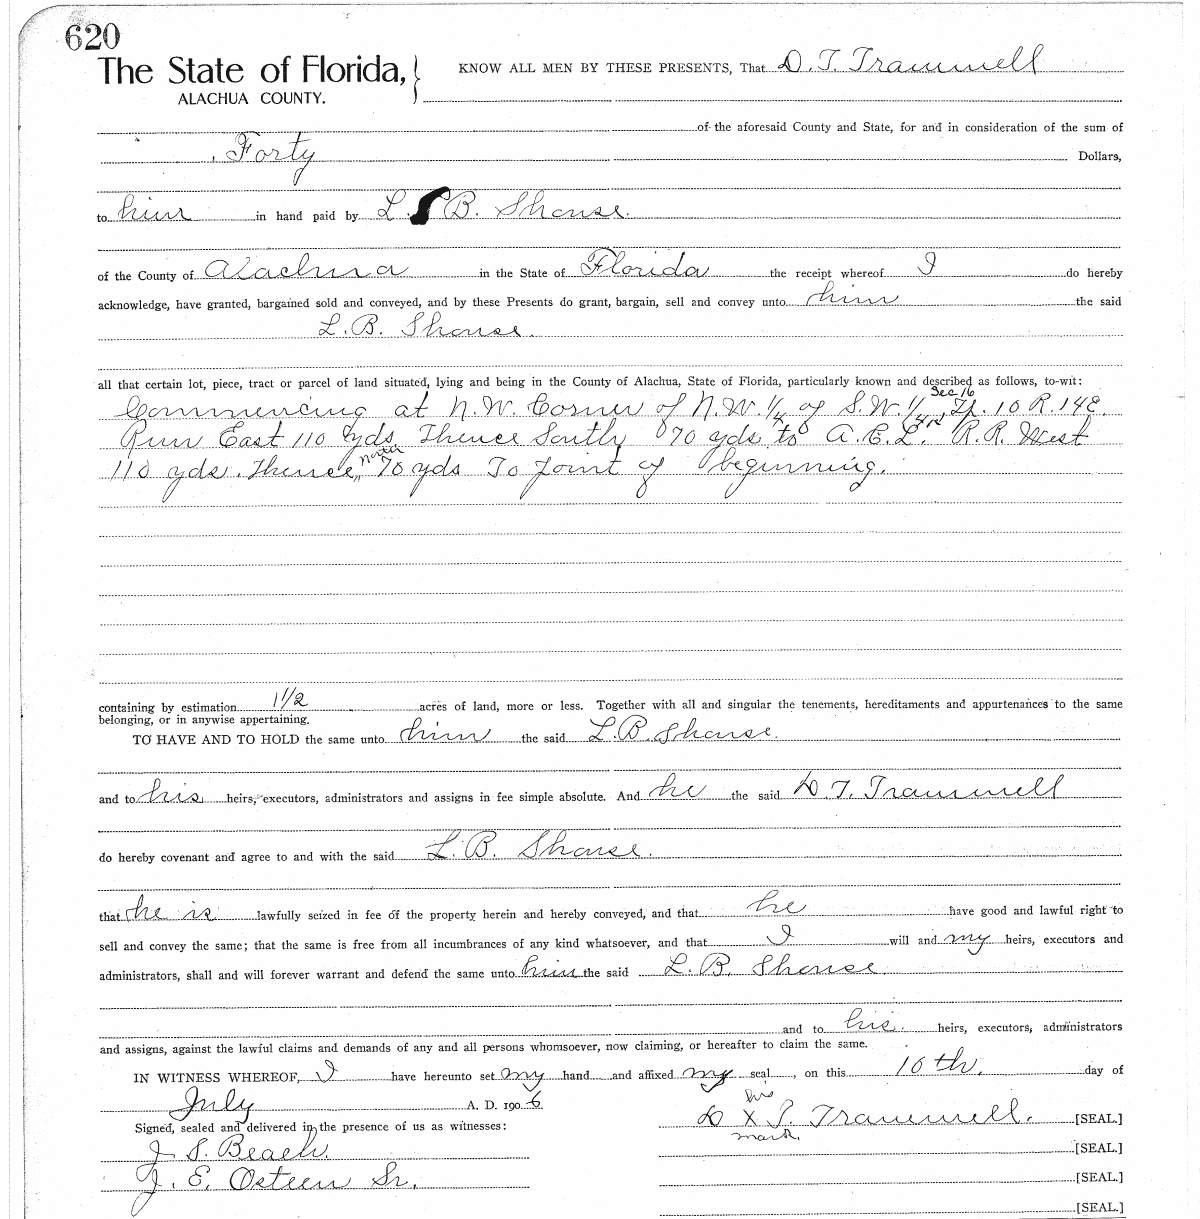 620
The State of Florida,
ALACHUA COUNTY.
KNOW ALL MEN BY THESE PRESENTS, That D. T. Trammell
of the aforesaid County and State, for and in consideration of the sum of
Forty Dollars,
to him in hand paid by L. B. Shouse.
of the County of Alachua in the State of Florida the receipt whereof I do hereby
acknowledge, have granted, bargained sold and conveyed, and by these Presents do grant, bargain, sell and convey unto him the said
L. B. Shouse.
all that certain lot, piece, tract or parcel of land situated, lying and being in the County of Alachua, State of Florida, particularly known and described as follows, to-wit:
Sec 16
Commencing at N.W. Corner of N.W. 1/4 of S.W. 1/4 Tp. 10 R. 14E.
Run East 110 yds. Thence South 70 yds to A.C.L. R.R. West
110 yds. Thence north 70 yds To point of beginning.
containing by estimation 1 1/2 acres of land, more or less. Together with all and singular the tenements, hereditaments and appurtenances to the same
belonging, or in anywise appertaining.
TO HAVE AND TO HOLD the same unto him the said L. B. Shouse.
and to his heirs, executors, administrators and assigns in fee simple absolute. And he the said D. T. Trammell
do hereby covenant and agree to and with the said L. B. Shouse.
that he is lawfully seized in fee of the property herein and hereby conveyed, and that he have good and lawful right to
sell and convey the same; that the same is free from all incumbrances of any kind whatsoever, and that I will and my heirs, executors and
administrators, shall and will forever warrant and defend the same unto him the said L. B. Shouse
and to his heirs, executors, administrators
and assigns, against the lawful claims and demands of any and all persons whomsoever, now claiming, or hereafter to claim the same.
IN WITNESS WHEREOF, I have hereunto set my hand and affixed my seal, on this 10th. day of
July A. D. 1906
his
D X T. Trammell. [SEAL.]
mark.
Signed, sealed and delivered in the presence of us as witnesses:
J. S. Beach. [SEAL.]
J. E. Osteen Sr. [SEAL.]
[SEAL.]